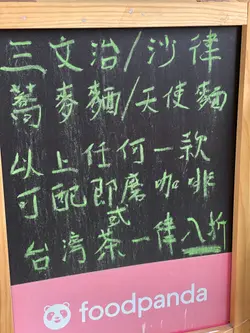 三文治/沙律
蕎麥麵/天使麵
以上任何一款
可配即磨咖啡
式
台灣茶一律八折
foodpanda